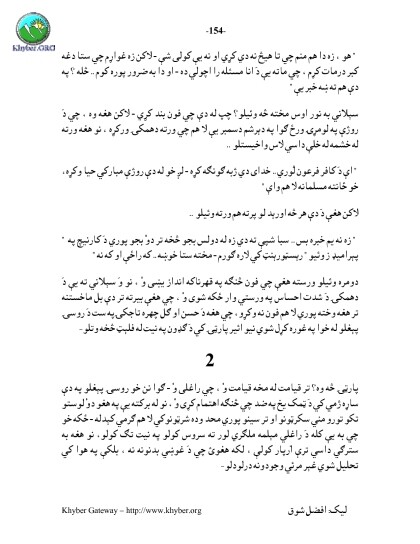 Khyber.ORG
-154-
" هو ، زه دا هم منم چې تا هيڅ نه دي کړي او نه يې کولی شې - لاکن زه غواړم چې ستا دغه
کبر درمات کړم ، چې ما ته يې دَ انا مسئله را اچولې ده - او دا به ضرور پوره کوم .. ځله ؟ په
دې هم ته ښه خبر يې "
سبلاني به نور اوس مخته څه وئيلو؟ چپ له دې چې فون بند کړي - لاکن هغه وه ، چې دَ
روژې په لومړۍ ورځ ګوا په ديرشم دسمبر يې لا هم چې ورته دهمکۍ ورکړه ، نو هغه ورته
له خشمه له خلې داسې لاس واخيستلو ..
" اې دَ کافر فرعون لورې .. خدای دې ژبه ګونګه کړه - لږ خو له دې روژې مبارکې حيا وکړه ،
خو ځانته مسلمانه لا هم وايې "
لاکن هغې دَ دې هر څه اورېدلو پرته هم ورته وئيلو ..
" زه نه يم خبره بس .. سبا شپې ته دې زه له دولس بجو څخه تر دوُ بجو پورې دَ کارنيج په "
پيراميډ ز وئيو " ريسټورينټ کې لاره ګورم - مخته ستا خوښه .. که راځې او که نه "
دومره وئيلو ورسته هغې چې فون څنګه په قهرناکه انداز بند وُ ، نو دَ سبلاني ته يې دَ
دهمکۍ دَ شدت احساس په ورستي وار ځکه شوی وُ ، چې هغې بېرته تر دې بل ماخستنه
تر هغه وخته پورې لا هم فون نه وکړو ، چې هغه دَ حسن او ګل چهره تاجکې په ست دَ روسۍ
پيغلو له خوا په غوره کړل شوي نيو ائير پارټۍ کې دَ ګډون په نيت له فلېټ څخه وتلو -
2
پارټۍ څه وه؟ تر قيامت له مخه قيامت وُ ، چې راغلی وُ - ګوا نن خو روسۍ پيغلو په دې
ساړه ژمي کې دَ ټمک يخ په ضد چې څنګه اهتمام کړی وُ ، نو له برکته يې په هغو دوُ لوستو
تکو تورو مني سکرټونو او تر سينو پورې محدوده شرټونو کې لا هم ګرمي کېدله - ځکه خو
چې به يې کله دَ راغلي مېلمه ملګري لور ته سروس کولو په نيت تګ کولو ، نو هغه به
سترګې داسې ترې اړپار کولې ، لکه هغوئ چې دَ غوښې بدنونه نه ، بلکې په هوا کې
تحليل شوي غير مرئي وجودونه درلودلو -
Khyber Gateway – http://www.khyber.org
ليک: افضل شوق